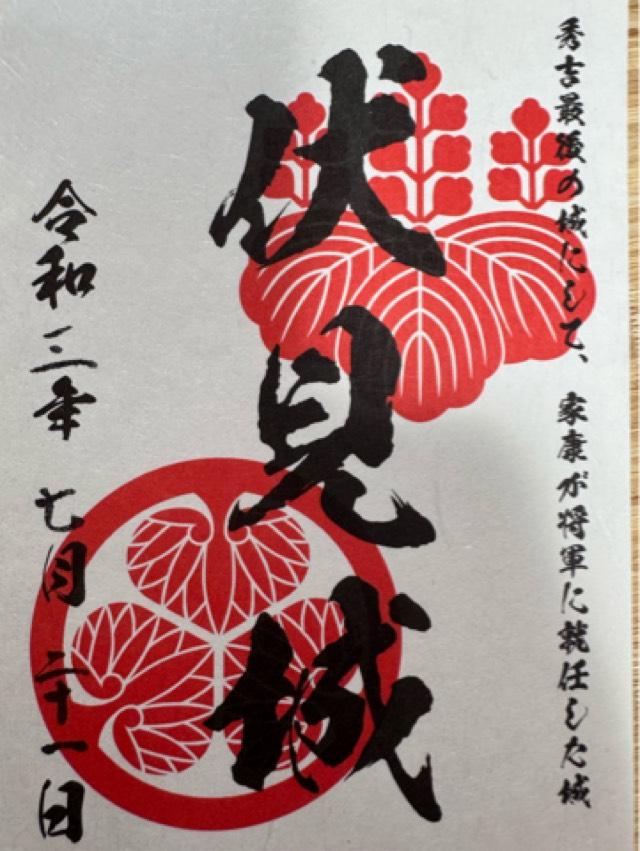 秀吉最後の城にして、家康が将軍に就任した城
伏見城
令和三年七月二十一日